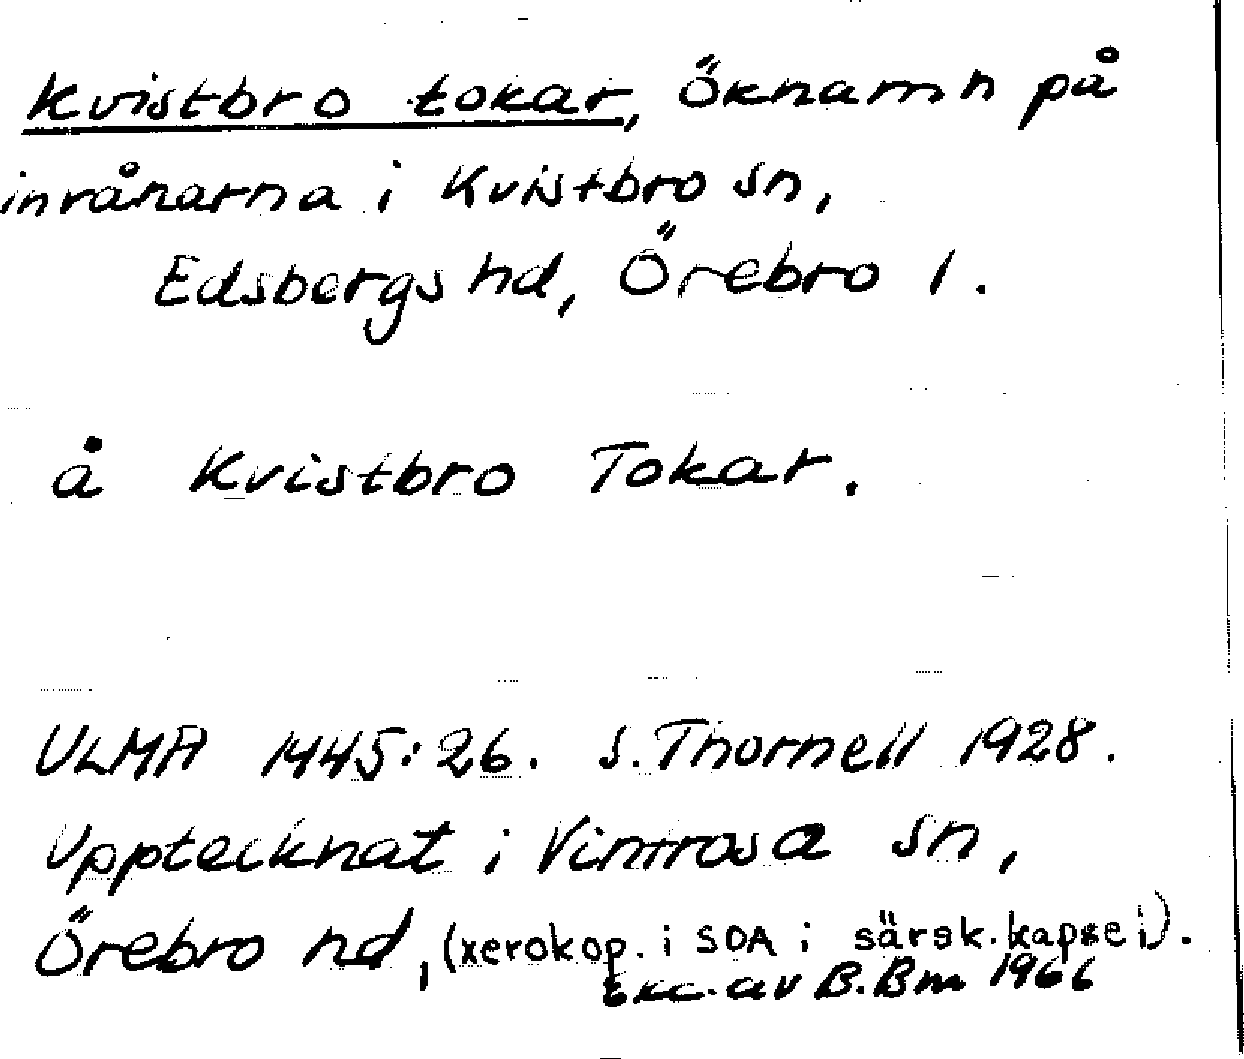 Kvistbro tokar, Öknamn på
invånarna i Kvistbro sn,
Edsbergs hd, Örebro l.
å Kvistbro Tokar.
ULMA 1445:26. S. Thornell 1928.
Upptecknat i Vintrosa sn,
Örebro hd, (xerokop. i SOA i särsk. kapsel).
Exc. av B. Bm 1966